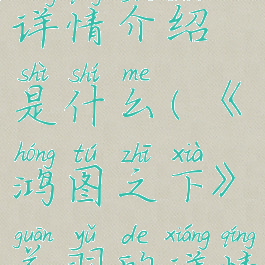 详情介绍
shì shí me
是什么(《
hóng tú zhī xià
鸿图之下》
guān yǔ de xiáng qíng
关羽的详情